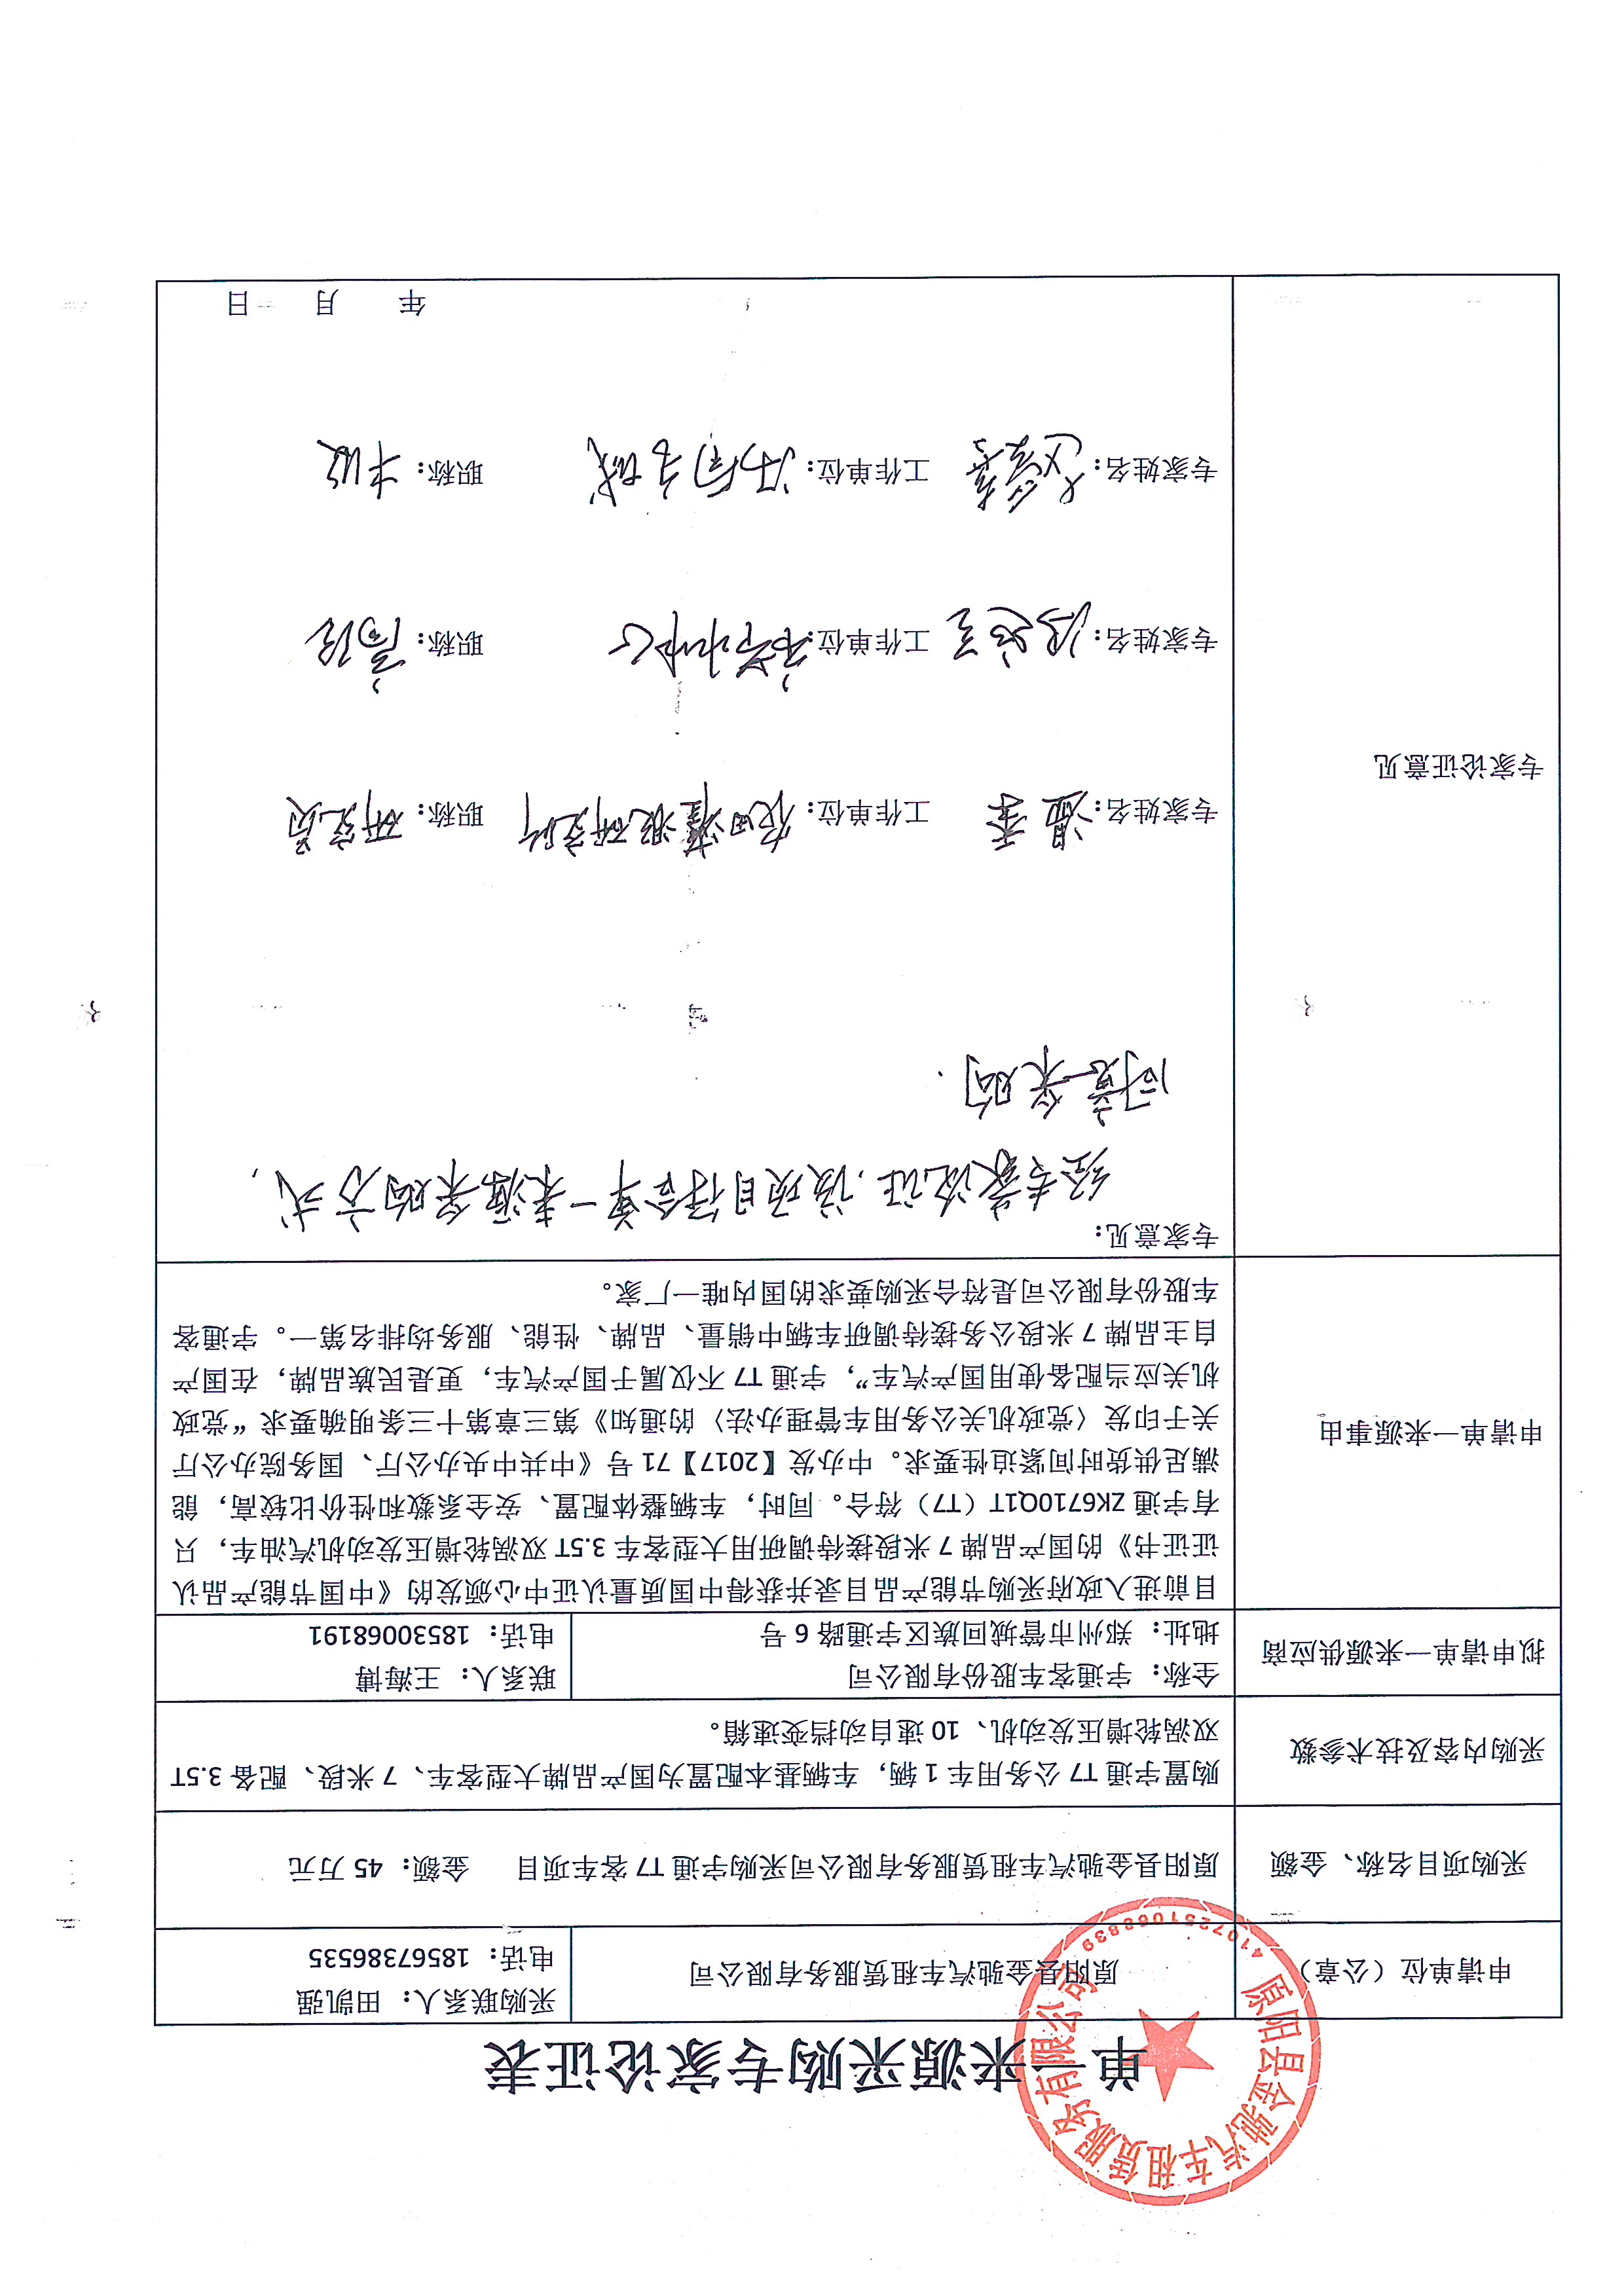 单一来源采购专家论证表
申请单位（公章）
原阳县金驰汽车租赁服务有限公司
采购联系人：田凯强
电话：18567386535
原阳县金驰汽车租赁服务有限公司
4107251068839
采购项目名称、金额
原阳县金驰汽车租赁服务有限公司采购宇通 T7 客车项目 金额：45 万元
采购内容及技术参数
购置宇通 T7 公务用车 1 辆，车辆基本配置为国产品牌大型客车、7 米段、配备 3.5T
双涡轮增压发动机、10 速自动挡变速箱。
拟申请单一来源供应商
全称：宇通客车股份有限公司
地址：郑州市管城回族区宇通路 6 号
联系人：王海博
电话：18530068191
申请单一来源事由
目前进入政府采购节能产品目录并获得中国质量认证中心颁发的《中国节能产品认
证证书》的国产品牌 7 米段接待调研用大型客车 3.5T 双涡轮增压发动机汽油车，只
有宇通 ZK6710Q1T（T7）符合。同时，车辆整体配置、安全系数和性价比较高，能
满足供货时间紧迫性要求。中办发【2017】71 号《中共中央办公厅、国务院办公厅
关于印发〈党政机关公务用车管理办法〉的通知》第三章第十三条明确要求“党政
机关应当配备使用国产汽车”，宇通 T7 不仅属于国产汽车，更是民族品牌，在国产
自主品牌 7 米段公务接待调研车辆中销量、品牌、性能、服务均排名第一。宇通客
车股份有限公司是符合采购要求的国内唯一厂家。
专家论证意见
专家意见：
经专家论证，该项目符合单一来源采购方式，
同意采购.
专家姓名：温季 工作单位：农田灌溉研究所 职称：研究员
专家姓名： 工作单位： 职称：高级
专家姓名： 工作单位： 职称：
年 月 日